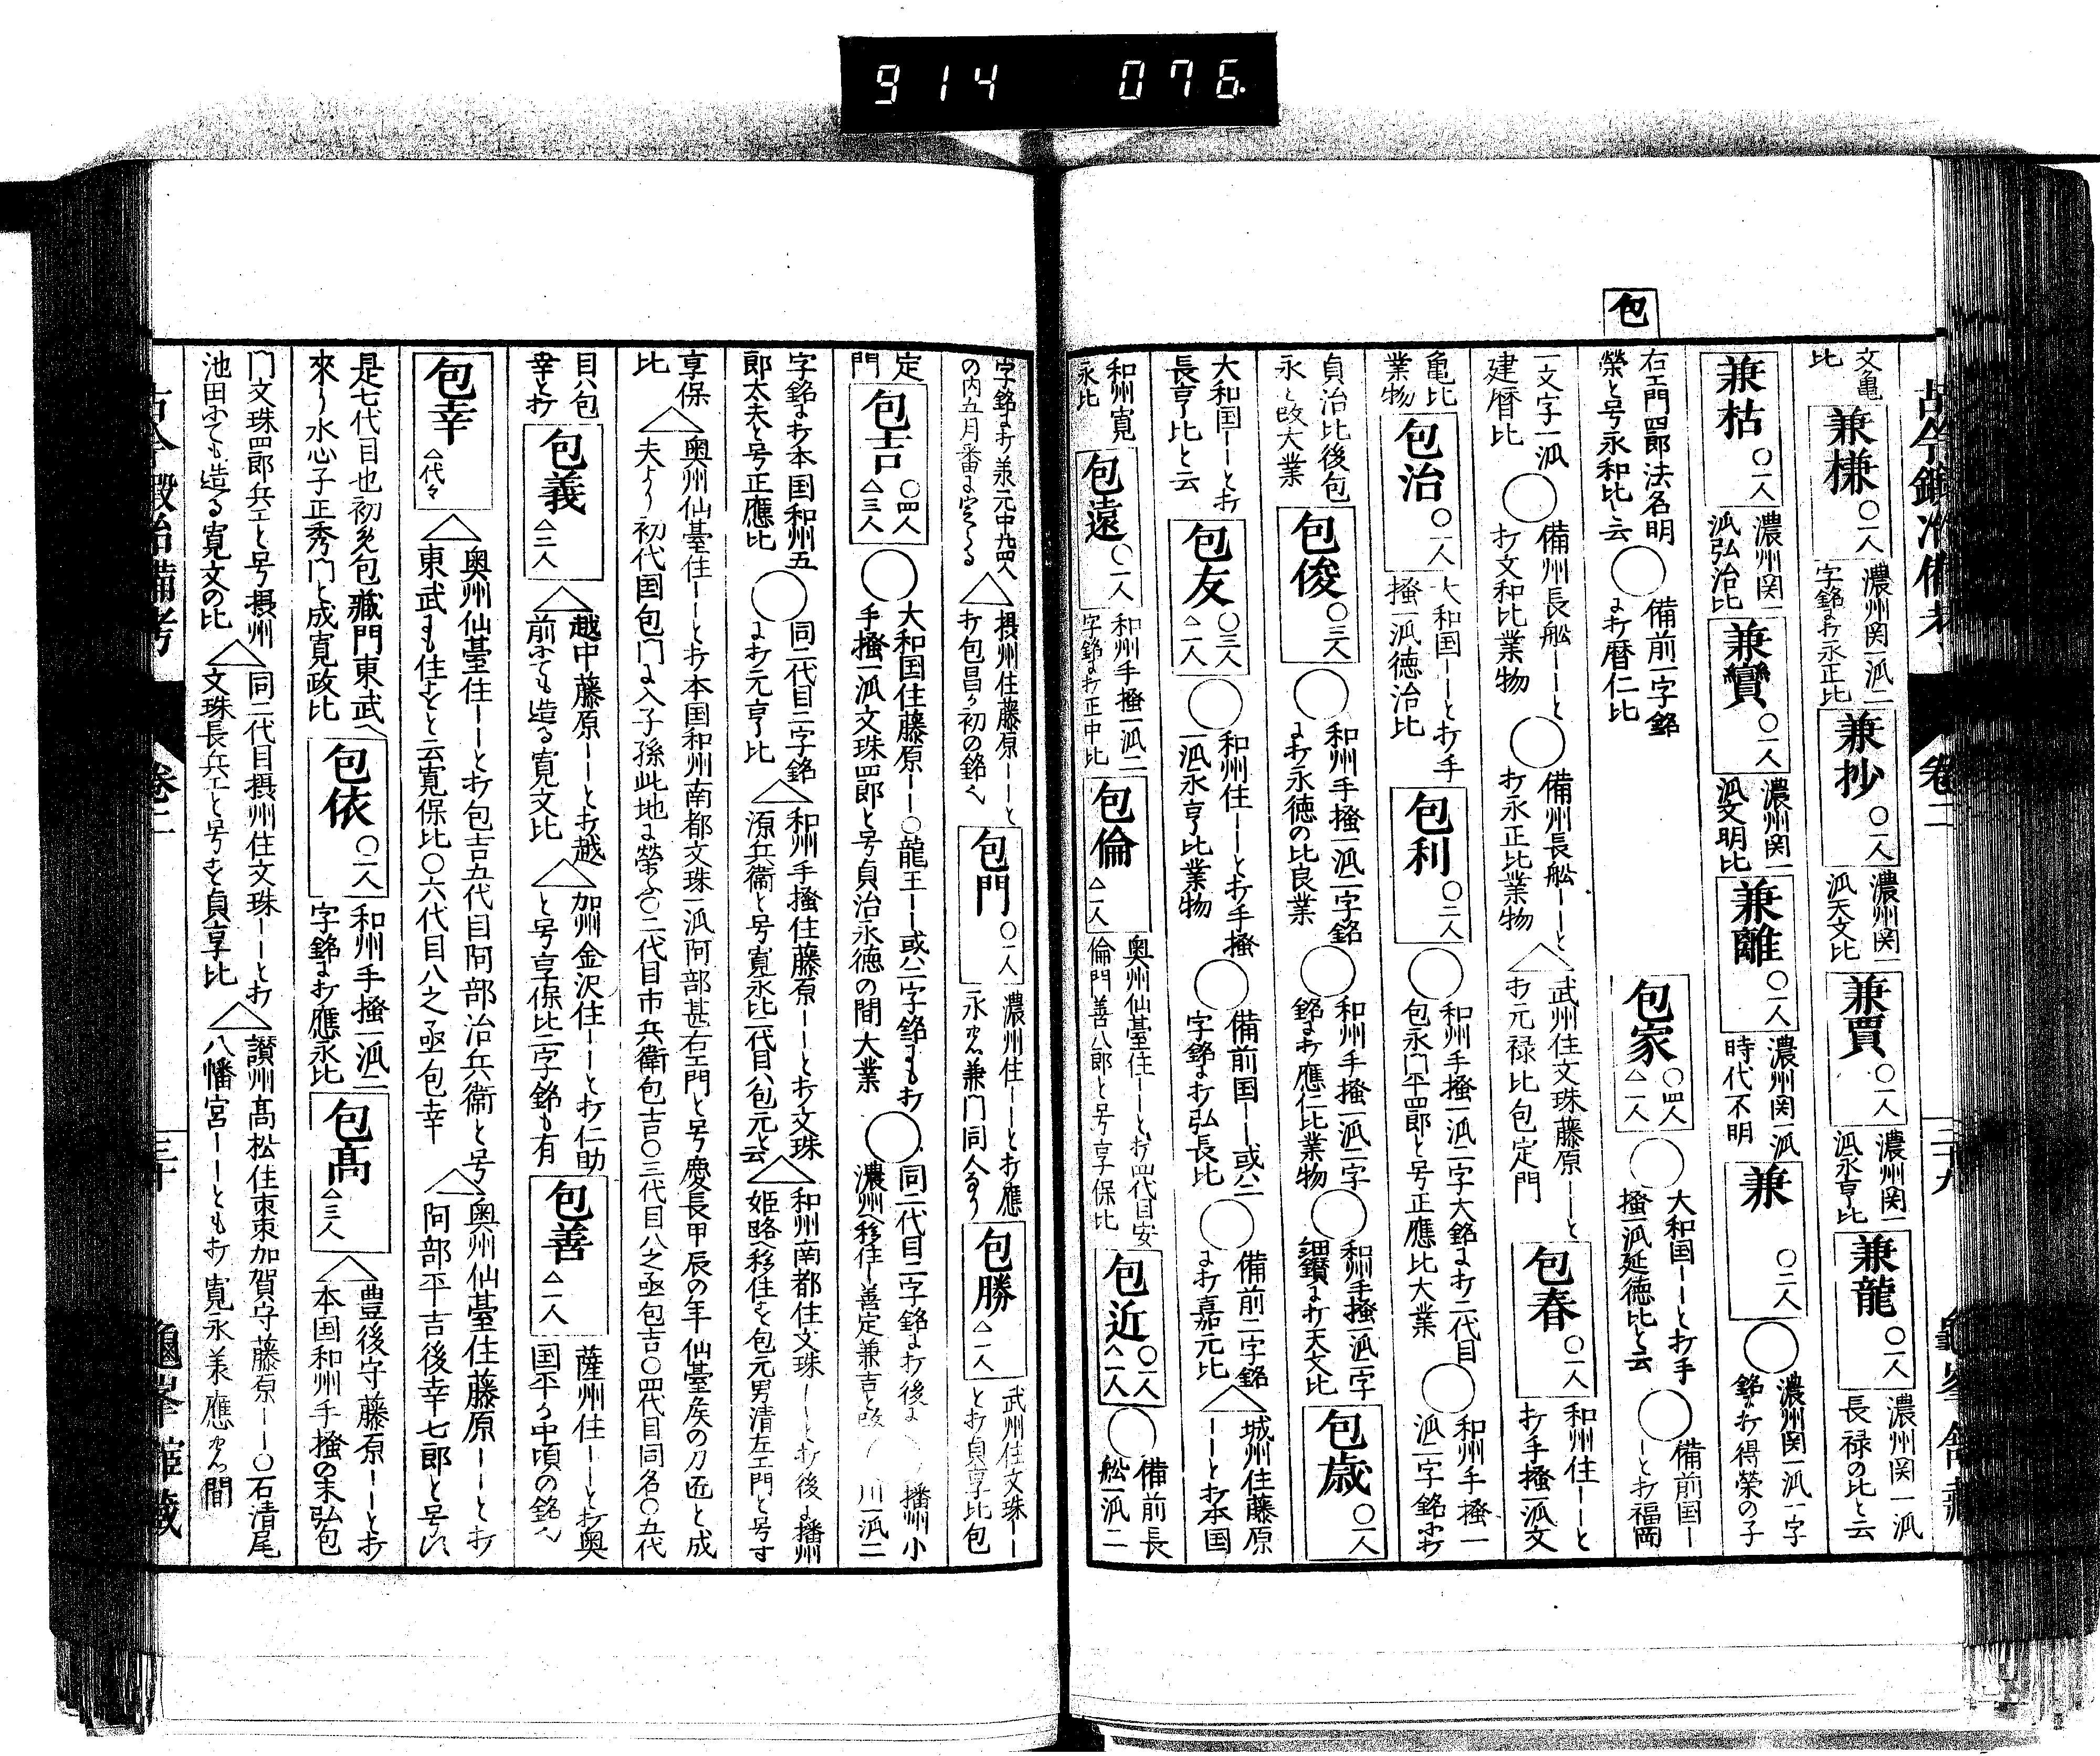 914 076
包
古今鍛冶備考 卷二 二十九 龜峯館藏
文亀比
兼槏 〇一人
濃州関一派二字銘ニ打永正比
兼抄 〇一人
濃州関一派天文比
兼賈 〇一人
濃州関一派永享比
兼龍 〇一人
濃州関一派長禄の比と云
兼枯 〇一人
濃州関一派弘治比
兼寳 〇一人
濃州関一派文明比
兼離 〇一人
濃州関一派時代不明
兼 〇二人
〇濃州関一派一字銘ニ打得榮の子
右エ門四郎法名明榮と号永和比と云
〇備前一字銘ニ打暦仁比
包家 〇四人 △一人
〇大和国ーーと打手掻一派延徳比と云
〇備前国ーーと打福岡
一文字一派建暦比
〇備州長舩ーーと打文和比業物
〇備州長舩ーーと打永正比業物
△武州住文珠藤原ーーと打元禄比包定門
包春 〇一人
和州住ーーと打手掻一派文
亀比業物
包治 〇一人
大和国ーーと打手掻一派徳治比
包利 〇二人
〇和州手掻一派二字大銘ニ打二代目包永門平四郎と号正應比大業
〇和州手掻一派二字銘ニ打
貞治比後包永と改大業
包俊 〇三人
〇和州手掻一派一字銘ニ打永徳の比良業
〇和州手掻一派二字銘ニ打應仁比業物
〇和州手掻一派二字細鑚ニ打天文比
包歳 〇一人
大和国ーーと打長享比と云
包友 〇三人 △一人
〇和州住ーーと打手掻一派永享比業物
〇備前国ーー或ハ二字銘ニ打弘長比
〇備前二字銘ニ打嘉元比
△城州住藤原ーーと打本国
和州寛永比
包遠 〇一人
和州手掻一派二字銘ニ打正中比
包倫 △一人
奥州仙臺住ーーと打四代目安倫門善八郎と号享保比
包近 〇二人 △一人
〇備前長舩一派二
字銘ニ打兼元中九四人の内五月番ニ定る
△摂州住藤原ーーと打包昌ヶ初の銘也
包門 〇一人
濃州住ーーと打應永比兼門同人なり
包勝 △一人
武州住文珠ーーと打貞享比包
定門
包吉 〇四人 △三人
〇大和国住藤原ーー〇龍王ーー或ハ二字銘ニも打手掻一派文珠四郎と号貞治永徳の間大業
〇同二代目二字銘ニ打後ニ濃州へ移住ー善定兼吉と改
播州小川一派二
字銘ニ打本国和州五郎太夫と号正應比
〇同二代目二字銘ニ打元亨比
△和州手掻住藤原ーーと打文珠源兵衞と号寛永比一代目ハ包元と云
△和州南都住文珠ーーと打後ニ播州姫路へ移住を包元男清左エ門と号す
享保比
△奥州仙臺住ーーと打本国和州南都文珠一派阿部甚右エ門と号慶長甲辰の年仙臺矦の刀匠と成夫より初代国包門ニ入子孫此地ニ榮ふ〇二代目市兵衛包吉〇三代目八之亟包吉〇四代目同名〇五代
目ハ包幸と打
包義 △二人
△越中藤原ーーと打越前にても造る寛文比
△加州金沢住ーーと打仁助と号享保比一字銘も有
包善 △一人
薩州住ーーと打奥国平ヶ中頃の銘也
包幸 △代々
△奥州仙臺住ーーと打包吉五代目阿部治兵衞と号東武ニも住すと云寛保比〇六代目八之亟包幸
△奥州仙臺住藤原ーーと打阿部平吉後幸七郎と号
是七代目也初免包藏門東武へ來り水心子正秀門と成寛政比
包依 〇一人
和州手掻一派二字銘ニ打應永比
包高 △三人
△豊後守藤原ーーと打本国和州手掻の末弘包
門文珠四郎兵エと号摂州池田にても造る寛文の比
△同二代目摂州住文珠ーーと打文珠長兵エと号す貞享比
△讃州高松住東東加賀守藤原ーー〇石清尾八幡宮ーーとも打寛永兼應の間
古今鍛冶備考 卷二 三十 龜峯館藏